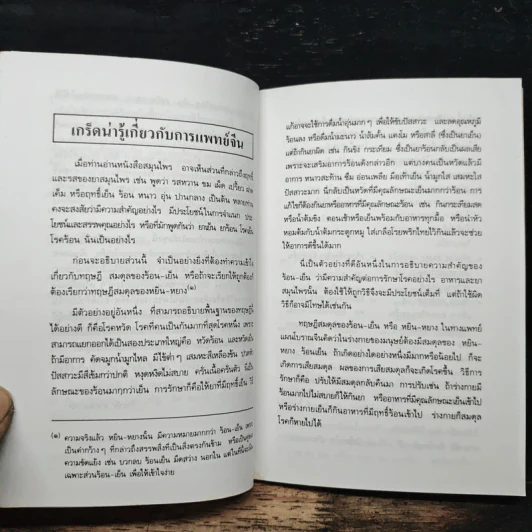 เกร็ดน่ารู้เกี่ยวกับการแพทย์จีน
เมื่อท่านอ่านหนังสือสมุนไพร อาจเห็นส่วนที่กล่าวถึงฤทธิ์
และรสของยาสมุนไพร เช่น พูดว่า รสหวาน ขม เผ็ด เปรี้ยว ฝาด
เค็ม หรือฤทธิ์เย็น ร้อน หนาว อุ่น ปานกลาง เป็นต้น หลายท่าน
คงจะสงสัยว่ามีความสำคัญอย่างไร มีประโยชน์ในการจำแนก ประ
โยชน์และสรรพคุณอย่างไร หรือที่มักพูดกันว่า ยาเย็น ยาร้อน โรคเย็น
โรคร้อน นั้นเป็นอย่างไร
ก่อนจะอธิบายส่วนนี้ จำเป็นอย่างยิ่งที่ต้องทำความเข้าใจ
เกี่ยวกับทฤษฎี สมดุลของร้อน-เย็น หรือถ้าจะเรียกให้ถูกต้องก็
ต้องเรียกว่าทฤษฎีสมดุลของหยิน-หยาง(๑)
มีตัวอย่างอยู่อันหนึ่ง ที่สามารถอธิบายพื้นฐานของทฤษฎีนี้
ได้อย่างดี ก็คือโรคหวัด โรคที่คนเป็นกันมากที่สุดโรคหนึ่ง เพราะ
สามารถแยกออกได้เป็นสองประเภทใหญ่คือ หวัดร้อน และหวัดเย็น
ถ้ามีอาการ คัดจมูกน้ำมูกไหล มีไข้ต่ำๆ เสมหะสีเหลืองข้น ปวดหัว
ปัสสาวะมีสีเข้มกว่าปกติ หงุดหงิดไม่สบาย ครั่นเนื้อครั่นตัว นี่เป็น
ลักษณะของร้อนมากๆกว่าเย็น การรักษาก็คือให้ยาที่มีฤทธิ์เย็น วิธี
(๑) ความจริงแล้ว หยิน-หยางนั้น มีความหมายมากกว่า ร้อน-เย็น เพราะ
เป็นคำกว้างๆ ที่กล่าวถึงสรรพสิ่งที่เป็นสิ่งตรงกันข้าม หรือเป็นคู่ของ
ความขัดแย้ง เช่น บวกลบ ร้อนเย็น มืดสว่าง นอกใน แต่ในที่นี้จะเน้น
เฉพาะส่วนร้อน-เย็น เพื่อให้เข้าใจง่าย
แก้อาจจะใช้การดื่มน้ำอุ่นมากๆ เพื่อให้ขับปัสสาวะ และลดอุณหภูมิ
ร้อนลง หรือดื่มน้ำมะนาว น้ำส้มคั้น แตงโม หรือสาลี่ (ซึ่งเป็นยาเย็น)
แต่ถ้ากินยาผิด เช่น กินขิง กระเทียม ซึ่งเป็นยาร้อนกลับเป็นผลเสีย
เพราะจะเสริมอาการร้อนดังกล่าวอีก แต่บางคนเป็นหวัดแล้วมี
อาการ หนาวสะท้าน ซึม อ่อนเพลีย มือเท้าเย็น น้ำมูกใส เสมหะใส
ปัสสาวะมาก นี่กลับเป็นหวัดที่มีคุณลักษณะเย็นมากกว่าร้อน การ
แก้ไขก็ต้องกินยาหรืออาหารที่มีคุณลักษณะร้อน เช่น กินกระเทียมสด
หรือน้ำต้มขิง ตอนเช้าหรือเย็นพร้อมกับอาหารทุกมื้อ หรือนำหัว
หอมต้มกับน้ำต้มกระดูกหมู ใส่เกลือโรยพริกไทยไว้กินแล้วจะช่วย
ให้อาการดีขึ้นได้มาก
นี่เป็นตัวอย่างที่ดีอันหนึ่งในการอธิบายความสำคัญของ
ร้อน-เย็น ว่ามีความสำคัญต่อการรักษาโรคอย่างไร อาหารและยา
สมุนไพรนั้น ต้องใช้ให้ถูกวิธีจึงจะมีประโยชน์เต็มที่ แต่ถ้าใช้ผิด
วิธีก็อาจมีโทษได้เช่นกัน
ทฤษฎีสมดุลของร้อน-เย็น หรือ หยิน-หยาง ในทางแพทย์
แผนโบราณจีนคิดว่าในร่างกายของมนุษย์ต้องมีสมดุลของ หยิน-
หยาง ร้อนเย็น ถ้าเกิดอย่างใดอย่างหนึ่งมีมากหรือน้อยไป ก็จะ
เกิดการเสียสมดุล ผลของการเสียสมดุลก็จะเกิดโรคขึ้น วิธีการ
รักษาก็คือ ปรับให้มีสมดุลกลับคืนมา การปรับเช่น ถ้าร่างกายมี
ร้อนมากไปไม่สบายก็ให้กินยา หรืออาหารที่มีคุณลักษณะเย็นเข้าไป
หรือร่างกายเย็นก็กินอาหารที่มีฤทธิ์ร้อนเข้าไป ร่างกายก็สมดุล
โรคก็หายไปได้